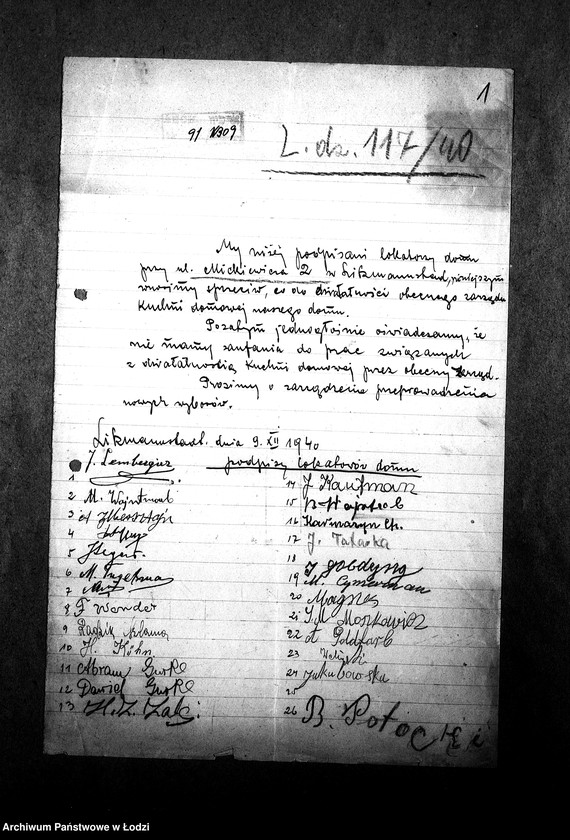 1
91 309
L. dz. 117/40
My niżej podpisani lokatorzy domu
przy ul. Mickiewicza 2 w Litzmannstadt, niniejszym
wnosimy sprzeciw, co do działalności obecnego zarządu
kuchni domowej naszego domu.
Pozatym jednogłośnie oświadczamy, że
nie mamy zaufania do prac związanych
z działalnością kuchni domowej przez obecny zarząd.
Prosimy o zarządzenie przeprowadzenia
nowych wyborów.
Litzmannstadt, dnia 9. XII 1940
podpisy lokatorów domu
1 J. Lemberger
2 M. Wajntraub
3
4
5
6 M.
7
8 F Wander
9
10 H. Kohn
11 Abram Gurke
12 Dawid Gurke
13 H. Z.
14 J Kaufman
15
16 Karmazyn Ch.
17 J. Tatarka
18 J goldyng
19 M. Cymerman
20 Magnes
21 J. M Moszkowicz
22 A Goldfarb
23
24 Jakubowska
25
26 B. Potocki
Archiwum Państwowe w Łodzi